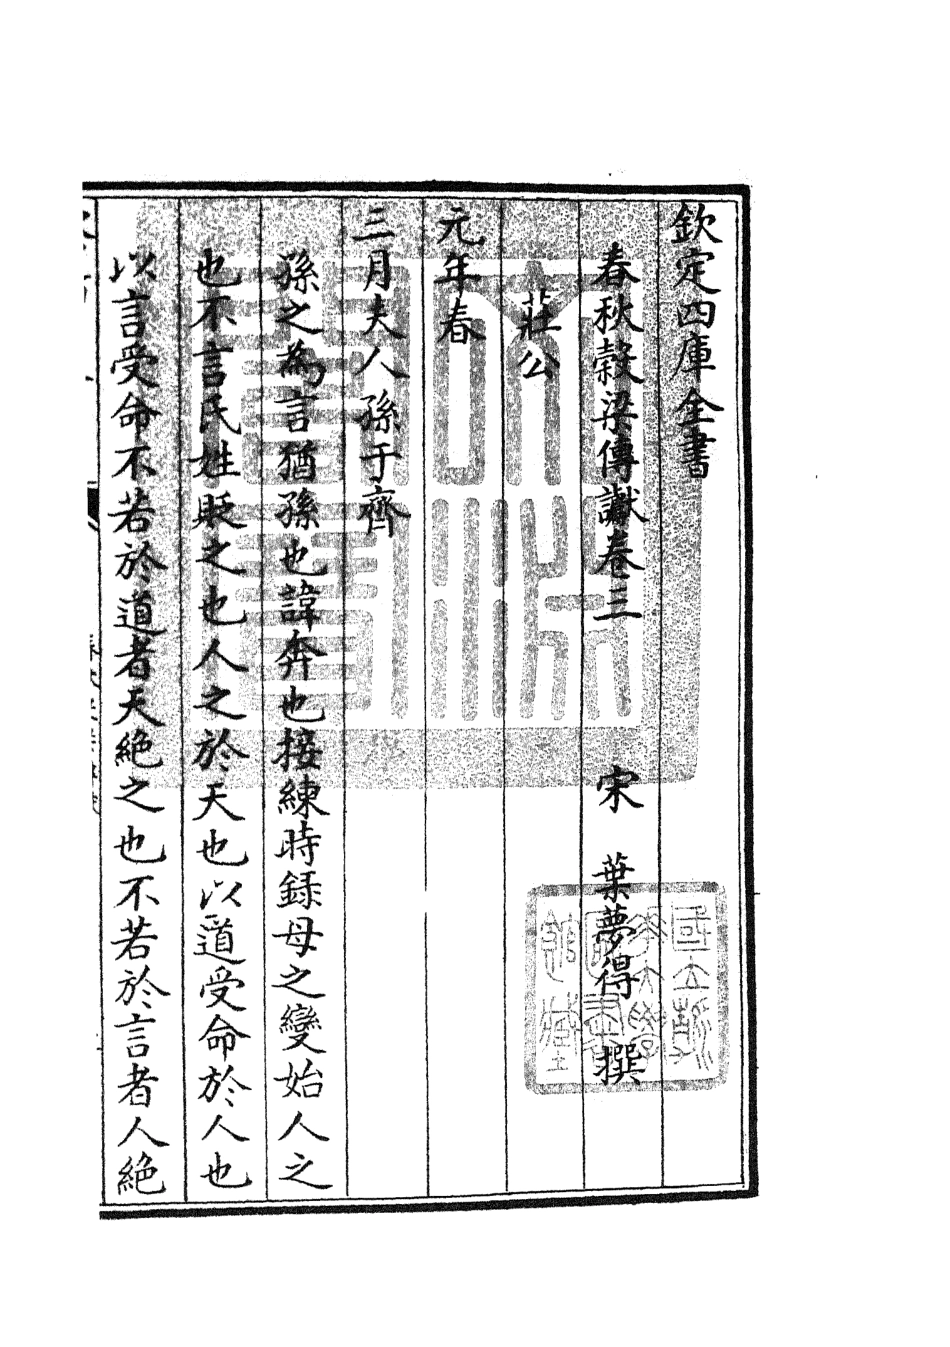 欽定四庫全書
春秋穀梁傳讞卷三 宋 葉夢得 撰
莊公
元年春
三月夫人孫于齊
孫之為言猶孫也諱奔也接練時錄母之變始人之
也不言氏姓貶之也人之於天也以道受命於人也
以言受命不若於道者天絶之也不若於言者人絶